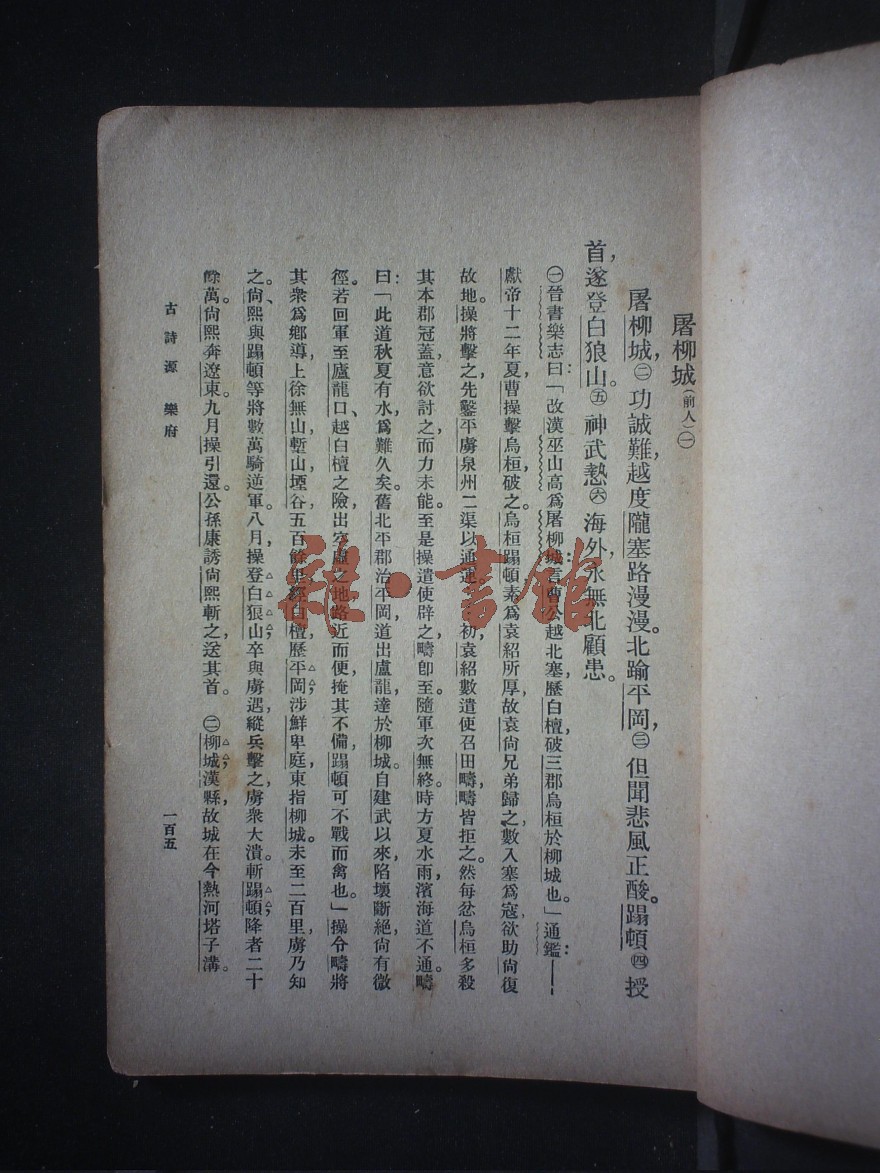 屠柳城(前人)㊀
屠柳城,㊁功誠難,越度隴塞路漫漫。北踰平岡,㊂但聞悲風正酸。蹋頓㊃授
首,遂登白狼山。㊄神武慹㊅海外,永無北顧患。
㊀晉書樂志:曰「改漢巫山高爲屠柳城,言曹公越北塞,歷白檀,破三郡烏桓於柳城也。」通鑑:——
獻帝十二年夏,曹操擊烏桓,破之。烏桓蹋頓素爲袁紹所厚,故袁尙兄弟歸之,數入塞爲寇,欲助尙復
故地。操將擊之,先鑿平虜泉州二渠以通運。初,袁紹數遣使召田疇,疇皆拒之。然每忿烏桓多殺
其本郡冠蓋,意欲討之而力未能。至是操遣使辟之,疇卽至。隨軍次無終。時方夏水雨,濱海道不通。疇
曰:「此道秋夏有水,爲難久矣。舊北平郡治平岡,道出盧龍,達於柳城。自建武以來,陷壞斷絕,尙有微
徑。若回軍至盧龍口,越白檀之險,出空虛之地,路近而便,掩其不備,蹋頓可不戰而禽也。」操令疇將
其衆爲鄉導,上徐無山,塹山堙谷,五百餘里,經白檀,歷平岡,涉鮮卑庭,東指柳城。未至二百里,虜乃知
之。尙、熙與蹋頓等將數萬騎逆軍。八月,操登白狼山,卒與虜遇,縱兵擊之,虜衆大潰。斬蹋頓,降者二十
餘萬。尙熙奔遼東。九月,操引還。公孫康誘尙熙斬之,送其首。 ㊁柳城,漢縣,故城在今熱河塔子溝。
古詩源 樂府
一百五
書館